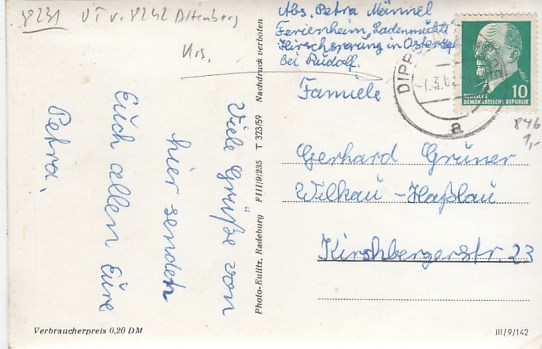 8231 ÜT v. 8242 Altenberg
Urs.
Viele Grüße von
hier senden
Euch allen Eure
Petra.
Verbraucherpreis 0,20 DM
Photo-Eulitz, Radeburg F III/9/235 T 323/59 Nachdruck verboten
Abs. Petra Männel
Ferienheim, Ladenmühle
Hirschsprung in Osterzgeb.
bei Rudolf.
Famiele
Gerhard Grüner
Wilkau-Haßlau
Kirchbergerstr 23
10
DEUTSCHE
DEMOKRATISCHE REPUBLIK
DIPP
a
846
1,-
III/9/142